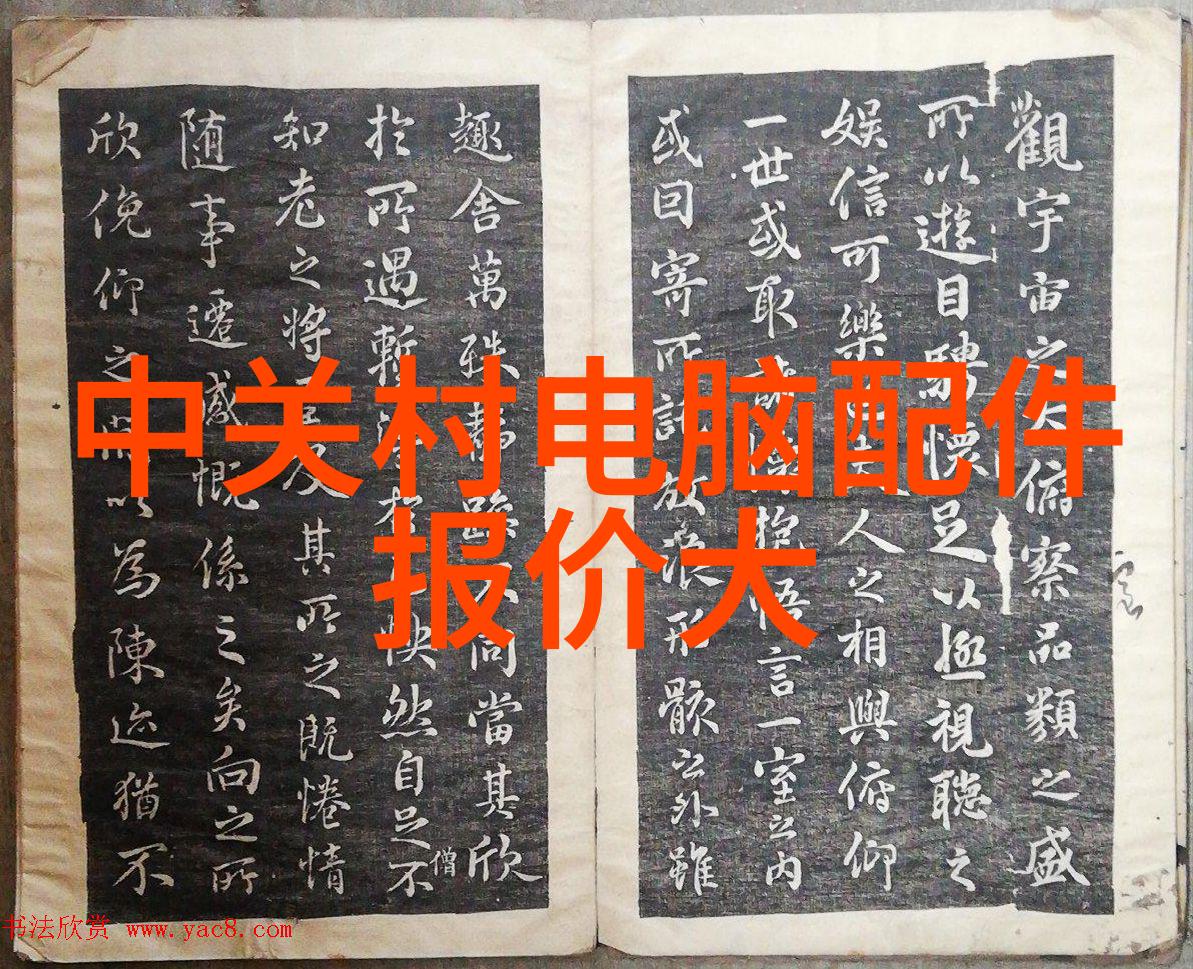 中关村电脑配件
报价大
觀宇宙之大俯察品類之盛
所以遊目騁懷足以極視聽之
娱信可樂人之相與俯仰
一世或取諸懷抱悟言一室之内
或因寄所託放浪形骸之外雖
趣舍萬殊静躁不同當其欣
僧
於所遇暫得於怏然自足不
知老之将至及其所之既惓情
随事遷感慨係之矣向之所
欣俛仰之以為陳迹猶不
书法欣赏 www.yac8.com